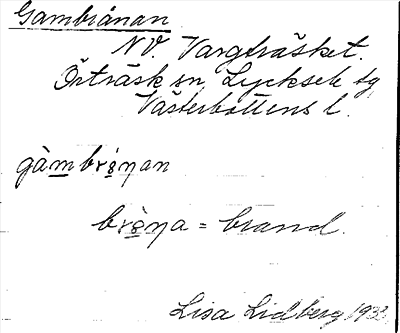 Gambrånan
NV. Vargträsket.
Örträsk sn, Lycksele tg
Västerbottens l.
gàmbrōŋan
brōŋa = brand.
Lisa Lidberg